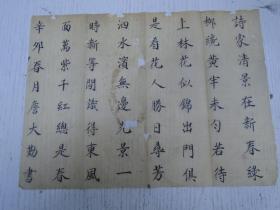 詩家清景在新春綠
柳纔黃半未勻若待
上林花似錦出門俱
是看花人勝日尋芳
泗水濱無邊光景一
時新等閒識得東風
面萬紫千紅總是春
辛卯春月詹大勤書